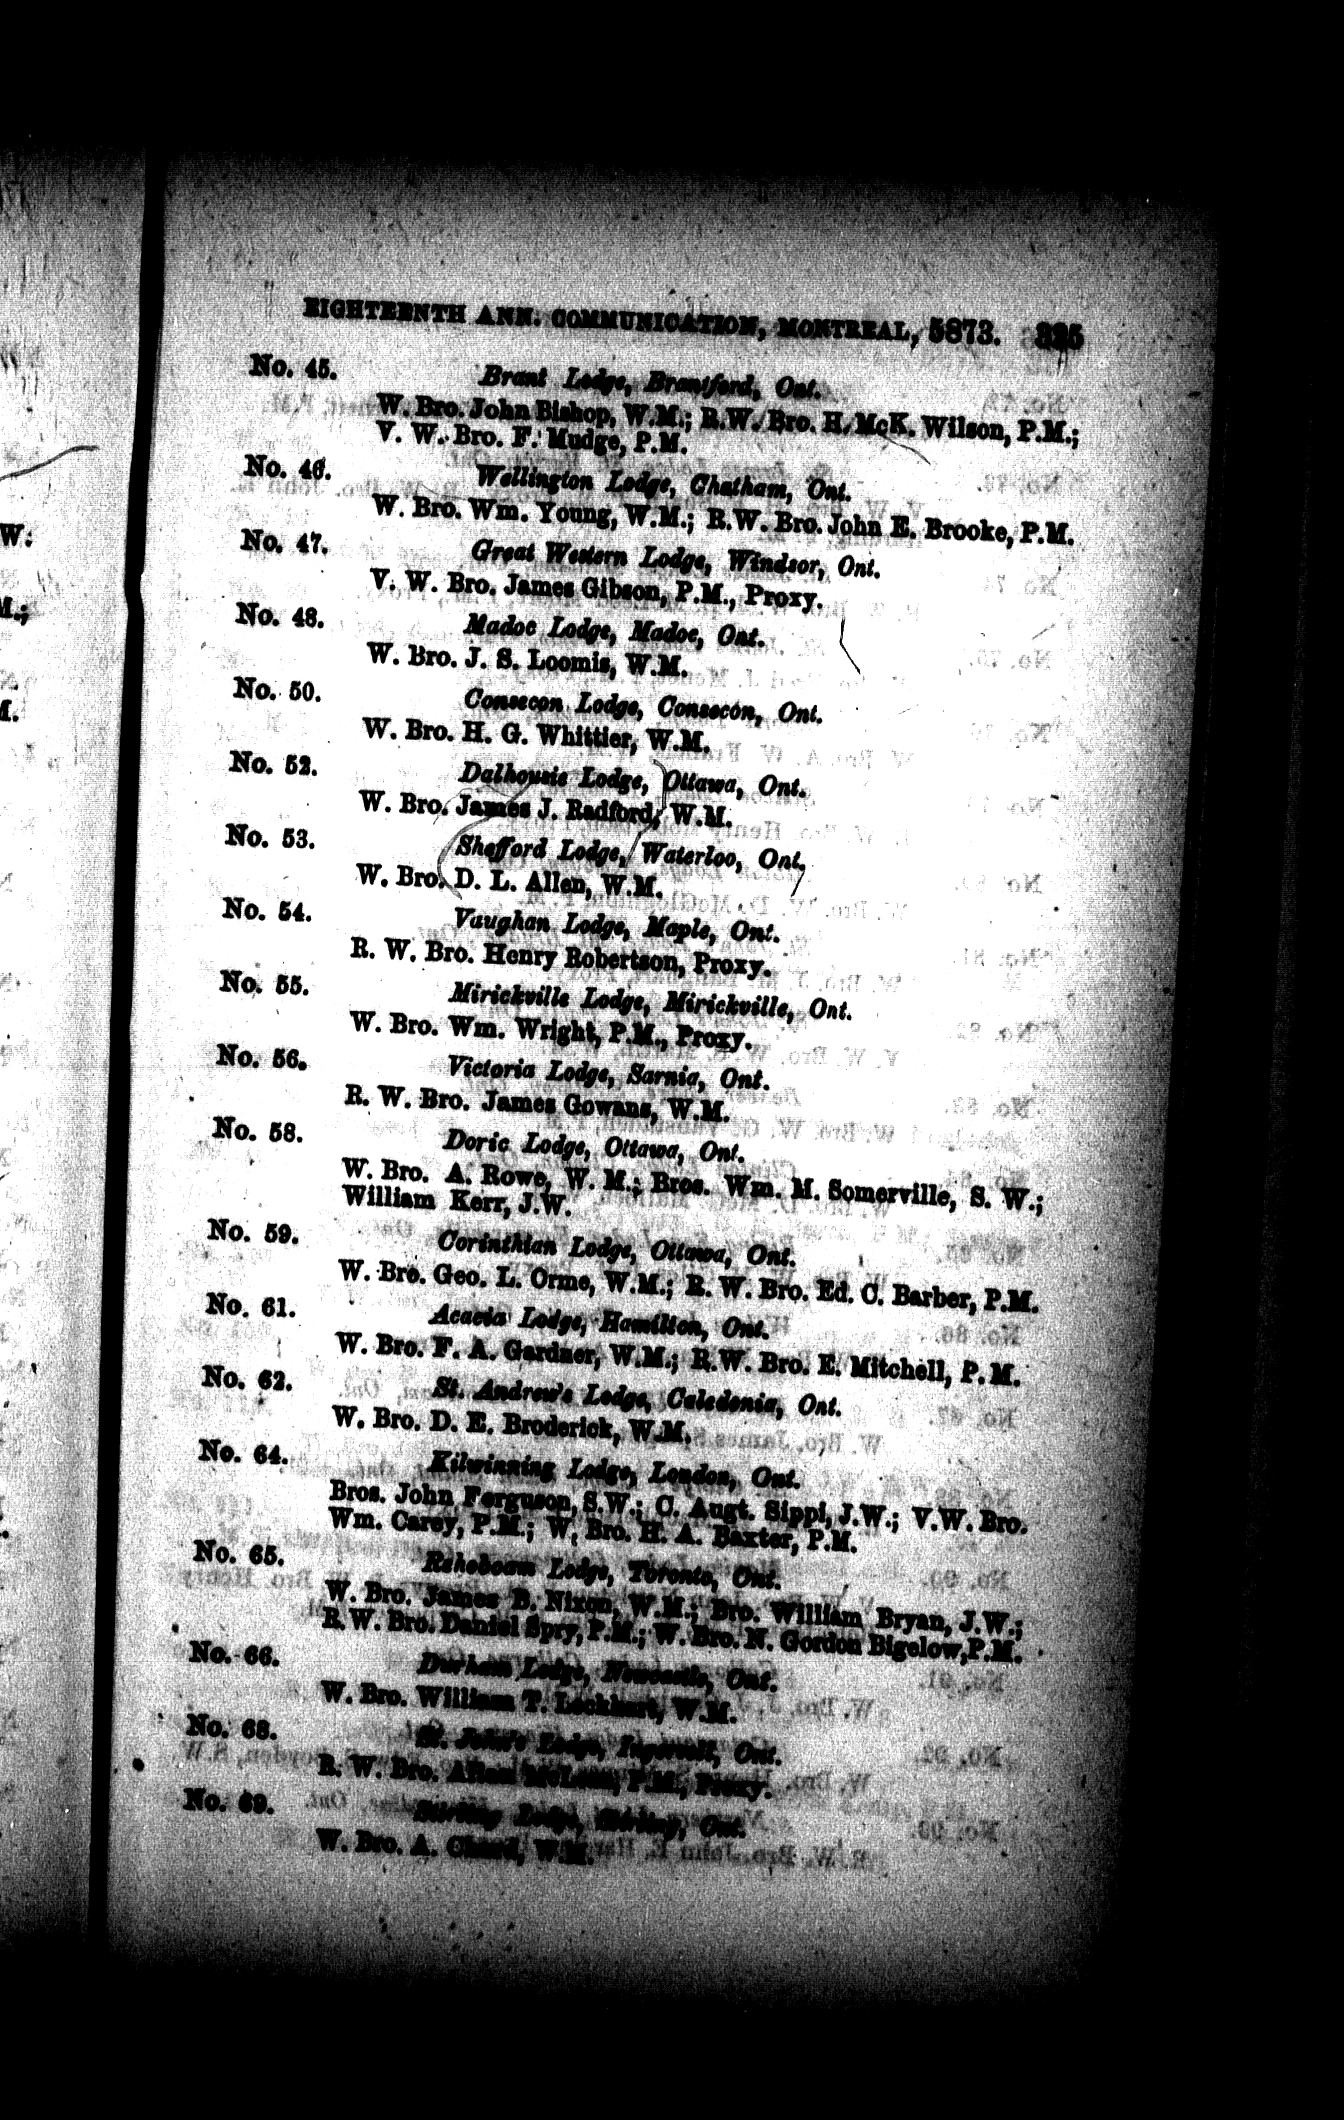 EIGHTEENTH ANN. COMMUNICATION, MONTREAL, 5873. 325
No. 45. Brant Lodge, Brantford, Ont.
W. Bro. John Bishop, W.M.; R.W. Bro. H. McK. Wilson, P.M.;
V. W. Bro. F. Mudge, P.M.
No. 46. Wellington Lodge, Chatham, Ont.
W. Bro. Wm. Young, W.M.; R.W. Bro. John E. Brooke, P.M.
No. 47. Great Western Lodge, Windsor, Ont.
V. W. Bro. James Gibson, P.M., Proxy.
No. 48. Madoc Lodge, Madoc, Ont.
W. Bro. J. S. Loomis, W.M.
No. 50. Consecon Lodge, Consecon, Ont.
W. Bro. H. G. Whittier, W.M.
No. 52. Dalhousie Lodge, Ottawa, Ont.
W. Bro. James J. Radford, W.M.
No. 53. Shefford Lodge, Waterloo, Ont.
W. Bro. D. L. Allen, W.M.
No. 54. Vaughan Lodge, Maple, Ont.
R. W. Bro. Henry Robertson, Proxy.
No. 55. Mirickville Lodge, Mirickville, Ont.
W. Bro. Wm. Wright, P.M., Proxy.
No. 56. Victoria Lodge, Sarnia, Ont.
R. W. Bro. James Gowans, W.M.
No. 58. Doric Lodge, Ottawa, Ont.
W. Bro. A. Rowe, W. M.; Bros. Wm. M. Somerville, S. W.;
William Kerr, J.W.
No. 59. Corinthian Lodge, Ottawa, Ont.
W. Bro. Geo. L. Orme, W.M.; R. W. Bro. Ed. C. Barber, P.M.
No. 61. Acacia Lodge, Hamilton, Ont.
W. Bro. F. A. Gardner, W.M.; R.W. Bro. E. Mitchell, P.M.
No. 62. St. Andrew's Lodge, Caledonia, Ont.
W. Bro. D. E. Broderick, W.M.
No. 64. Kilwinning Lodge, London, Ont.
Bros. John Ferguson, S.W.; C. Augt. Sippi, J.W.; V.W. Bro.
Wm. Carey, P.M.; W. Bro. H. A. Baxter, P.M.
No. 65. Rehoboam Lodge, Toronto, Ont.
W. Bro. James B. Nixon, W.M.; Bro. William Bryan, J.W.;
R.W. Bro. Daniel Spry, P.M.; W. Bro. N. Gordon Bigelow, P.M.
No. 66. Durham Lodge, Newcastle, Ont.
W. Bro. William T. Lockhart, W.M.
No. 68. St. John's Lodge, Ingersoll, Ont.
R. W. Bro. Allan McLean, P.M., Proxy.
No. 69. Stirling Lodge, Stirling, Ont.
W. Bro. A. Chard, W.M.